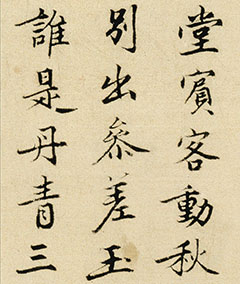 堂賓客動秋
別出參差玉
誰是丹青三